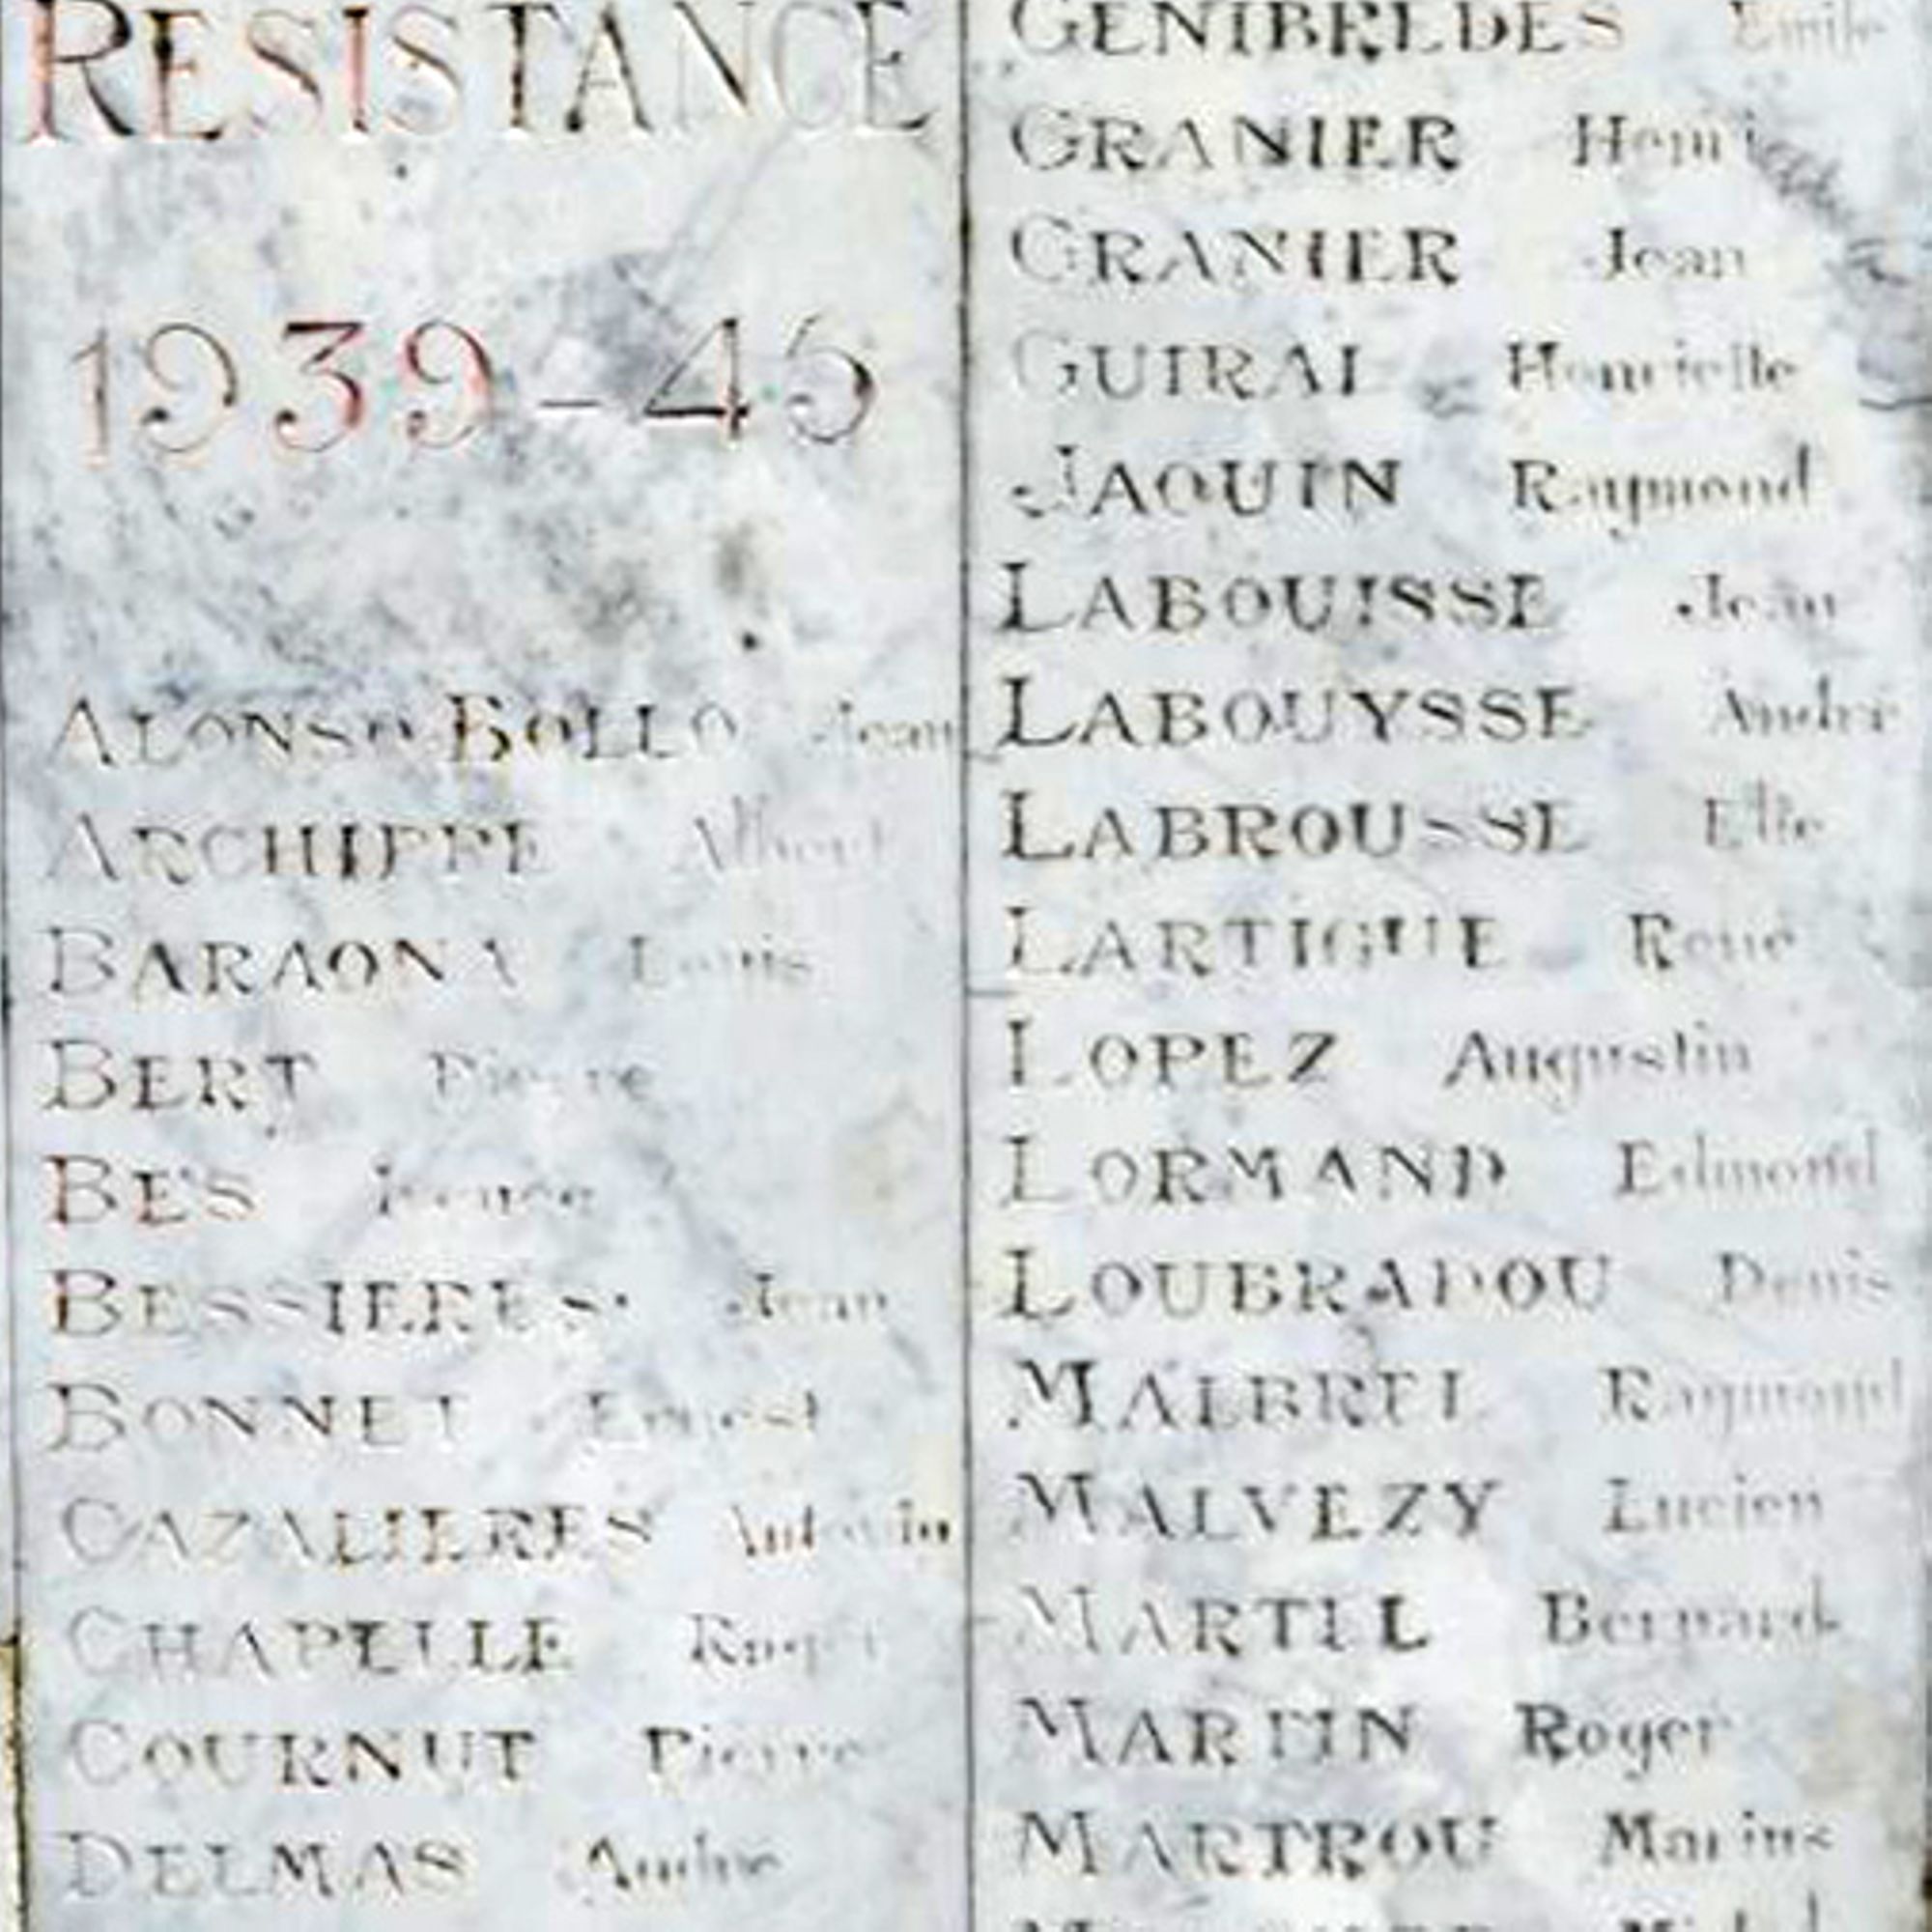 RESISTANCE
1939-45
ALONSO-BOLLO Jean
ARCHIPPE Albert
BARAONA Louis
BERT Pierre
BES
BESSIERES Jean
BONNET Ernest
CAZALIERES Antonin
CHAPELLE Roger
COURNUT Pierre
DELMAS André
GENIBREDES Emile
GRANIER Henri
GRANIER Jean
GUIRAL Henriette
JAOUIN Raymond
LABOUISSE Jean
LABOUYSSE André
LABROUSSE Elie
LARTIGUE René
LOPEZ Augustin
LORMAND Edmond
LOUBRADOU Denis
MALBREL Raymond
MALVEZY Lucien
MARTEL Bernard
MARTIN Roger
MARTROU Marius